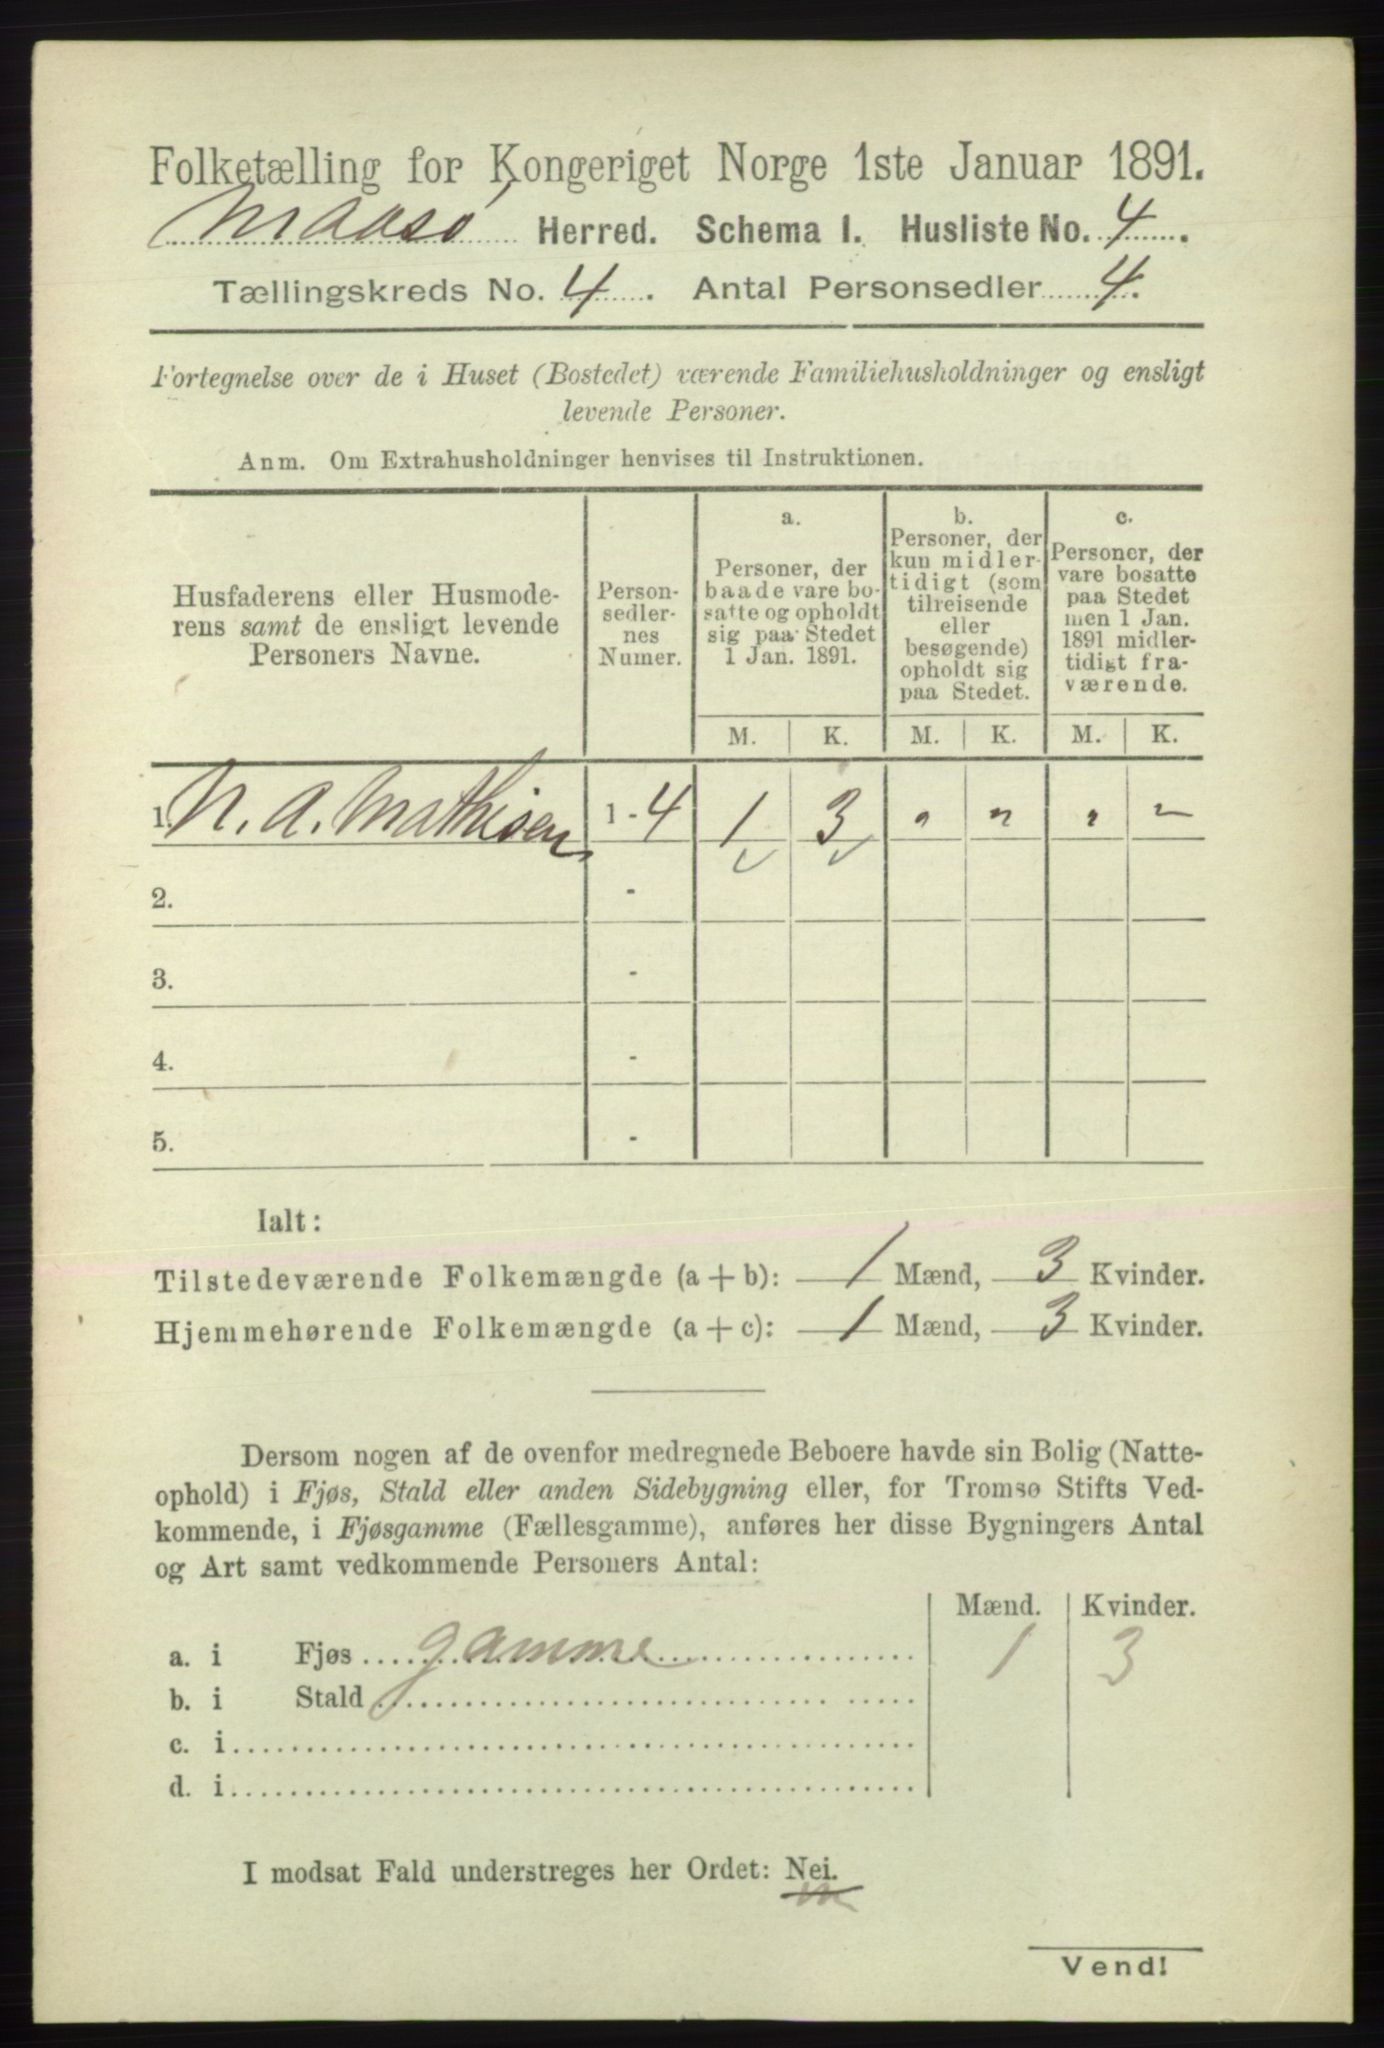 Folketælling for Kongeriget Norge 1ste Januar 1891.
Maasø Herred. Schema I. Husliste No. 4.
Tællingskreds No. 4. Antal Personsedler 4.
Fortegnelse over de i Huset (Bostedet) værende Familiehusholdninger og ensligt
levende Personer.
Anm. Om Extrahusholdninger henvises til Instruktionen.
Husfaderens eller Husmode-
rens samt de ensligt levende
Personers Navne.
Person-
sedler-
nes
Numer.
a.
Personer, der
baade vare bo-
satte og opholdt
sig paa Stedet
1 Jan. 1891.
b.
Personer, der
kun midler-
tidigt (som
tilreisende
eller
besøgende)
opholdt sig
paa Stedet.
c.
Personer, der
vare bosatte
paa Stedet
men 1 Jan.
1891 midler-
tidigt fra-
værende.
M. K. M. K. M. K.
1. N. A. Mathisen 1 - 4 1 3 " " " "
2. -
3. -
4. -
5. -
Ialt:
Tilstedeværende Folkemængde (a + b): 1 Mænd, 3 Kvinder.
Hjemmehørende Folkemængde (a + c): 1 Mænd, 3 Kvinder.
Dersom nogen af de ovenfor medregnede Beboere havde sin Bolig (Natte-
ophold) i Fjøs, Stald eller anden Sidebygning eller, for Tromsø Stifts Ved-
kommende, i Fjøsgamme (Fællesgamme), anføres her disse Bygningers Antal
og Art samt vedkommende Personers Antal:
Mænd. Kvinder.
a. i Fjøs gamme 1 3
b. i Stald
c. i
d. i
I modsat Fald understreges her Ordet: Nei.
Vend!